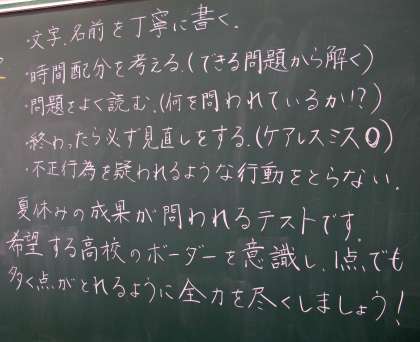 ・文字、名前を丁寧に書く。
・時間配分を考える。(できる問題から解く)
・問題をよく読む。(何を問われているか!?)
・終わったら必ず見直しをする。(ケアレスミス0)
・不正行為を疑われるような行動をとらない。
夏休みの成果が問われるテストです。
希望する高校のボーダーを意識し、1点でも
多く点がとれるように全力を尽くしましょう!